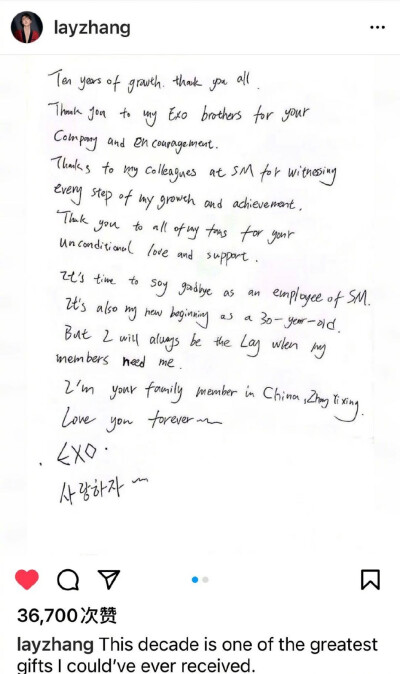 layzhang
Ten years of growth. thank you all.
Thank you to my Exo brothers for your
Company and encouragement.
Thanks to my colleagues at SM for witnessing
every step of my growth and achievement.
Thank you to all of my fans for your
unconditional love and support.
It's time to say goodbye as an employee of SM.
It's also my new beginning as a 30-year-old.
But I will always be the Lay when my
members need me.
I'm your family member in China, Zhang Yixing.
Love you forever~
EXO.
사랑하자~
36,700次赞
layzhang This decade is one of the greatest
gifts I could've ever received.